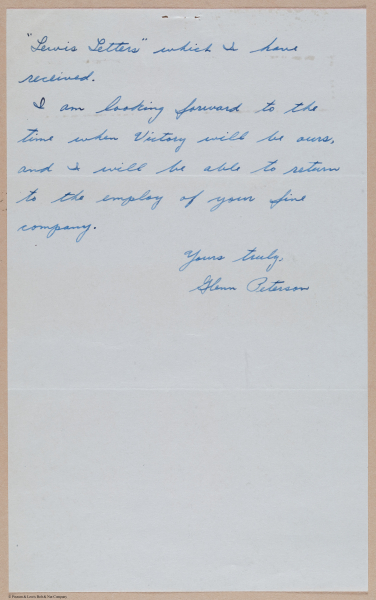 "Lewis Letters" which I have
received.
I am looking forward to the
time when Victory will be ours,
and I will be able to return
to the employ of your fine
company.
Yours truly,
Glenn Peterson